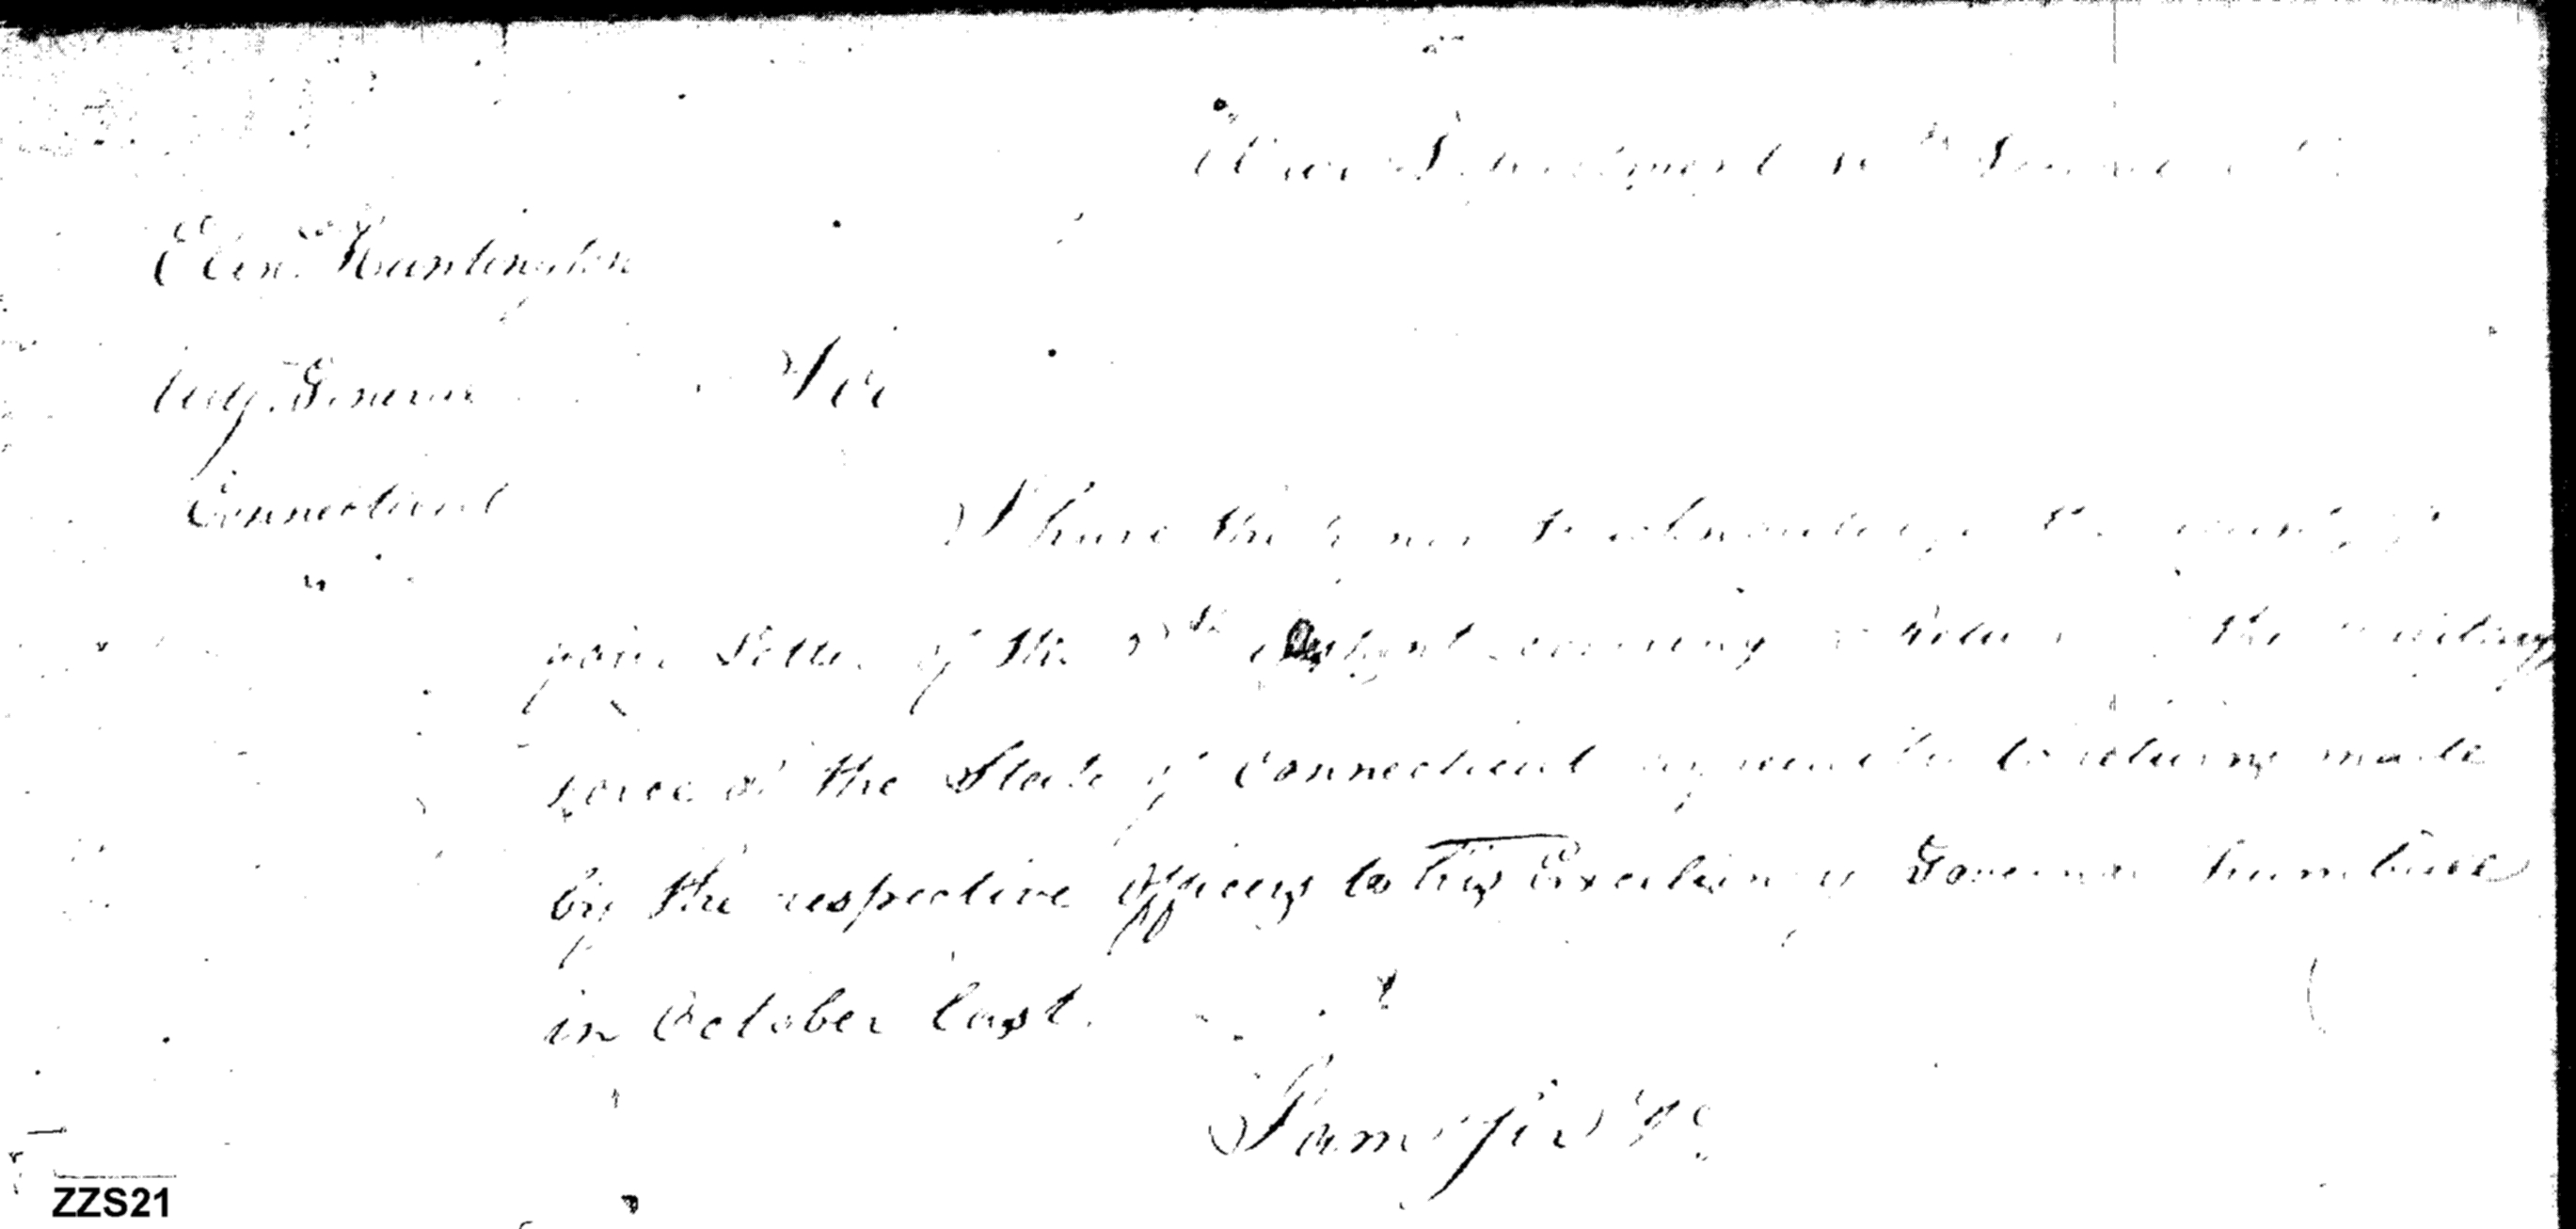 War Department
Eben. Huntington
Adjt. General
Sir
Connecticut
I have the honor to acknowledge the receipt of
your Letter of the instant covering a Return of the military
force of the State of Connecticut agreeable to returns made
by the respective officers to his Excellency Governor Trumbull
in October last.
I am Sir &c.
ZZS21